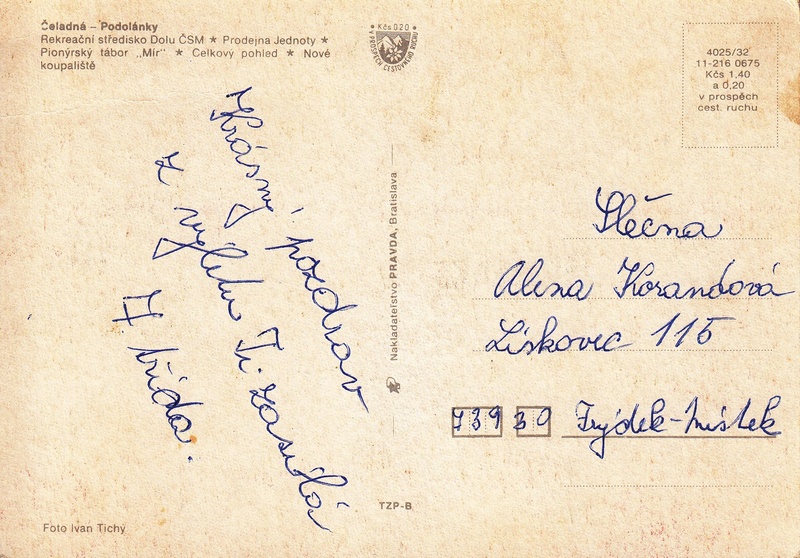 Čeladná – Podolánky
Rekreační středisko Dolu ČSM ★ Prodejna Jednoty ★
Pionýrský tábor „Mír" ★ Celkový pohled ★ Nové
koupaliště
Kčs 0,20
V PROSPĚCH CESTOVNÉHO RUCHU
4025/32
11-216 0675
Kčs 1,40
a 0,20
v prospěch
cest. ruchu
Krásný pozdrav
z výletu Ti zasílá
I. třída.
Nakladatelstvo PRAVDA, Bratislava
Slečna
Alena Korandová
Lískovec 115
739 30 Frýdek-Místek
TZP-B
Foto Ivan Tichý